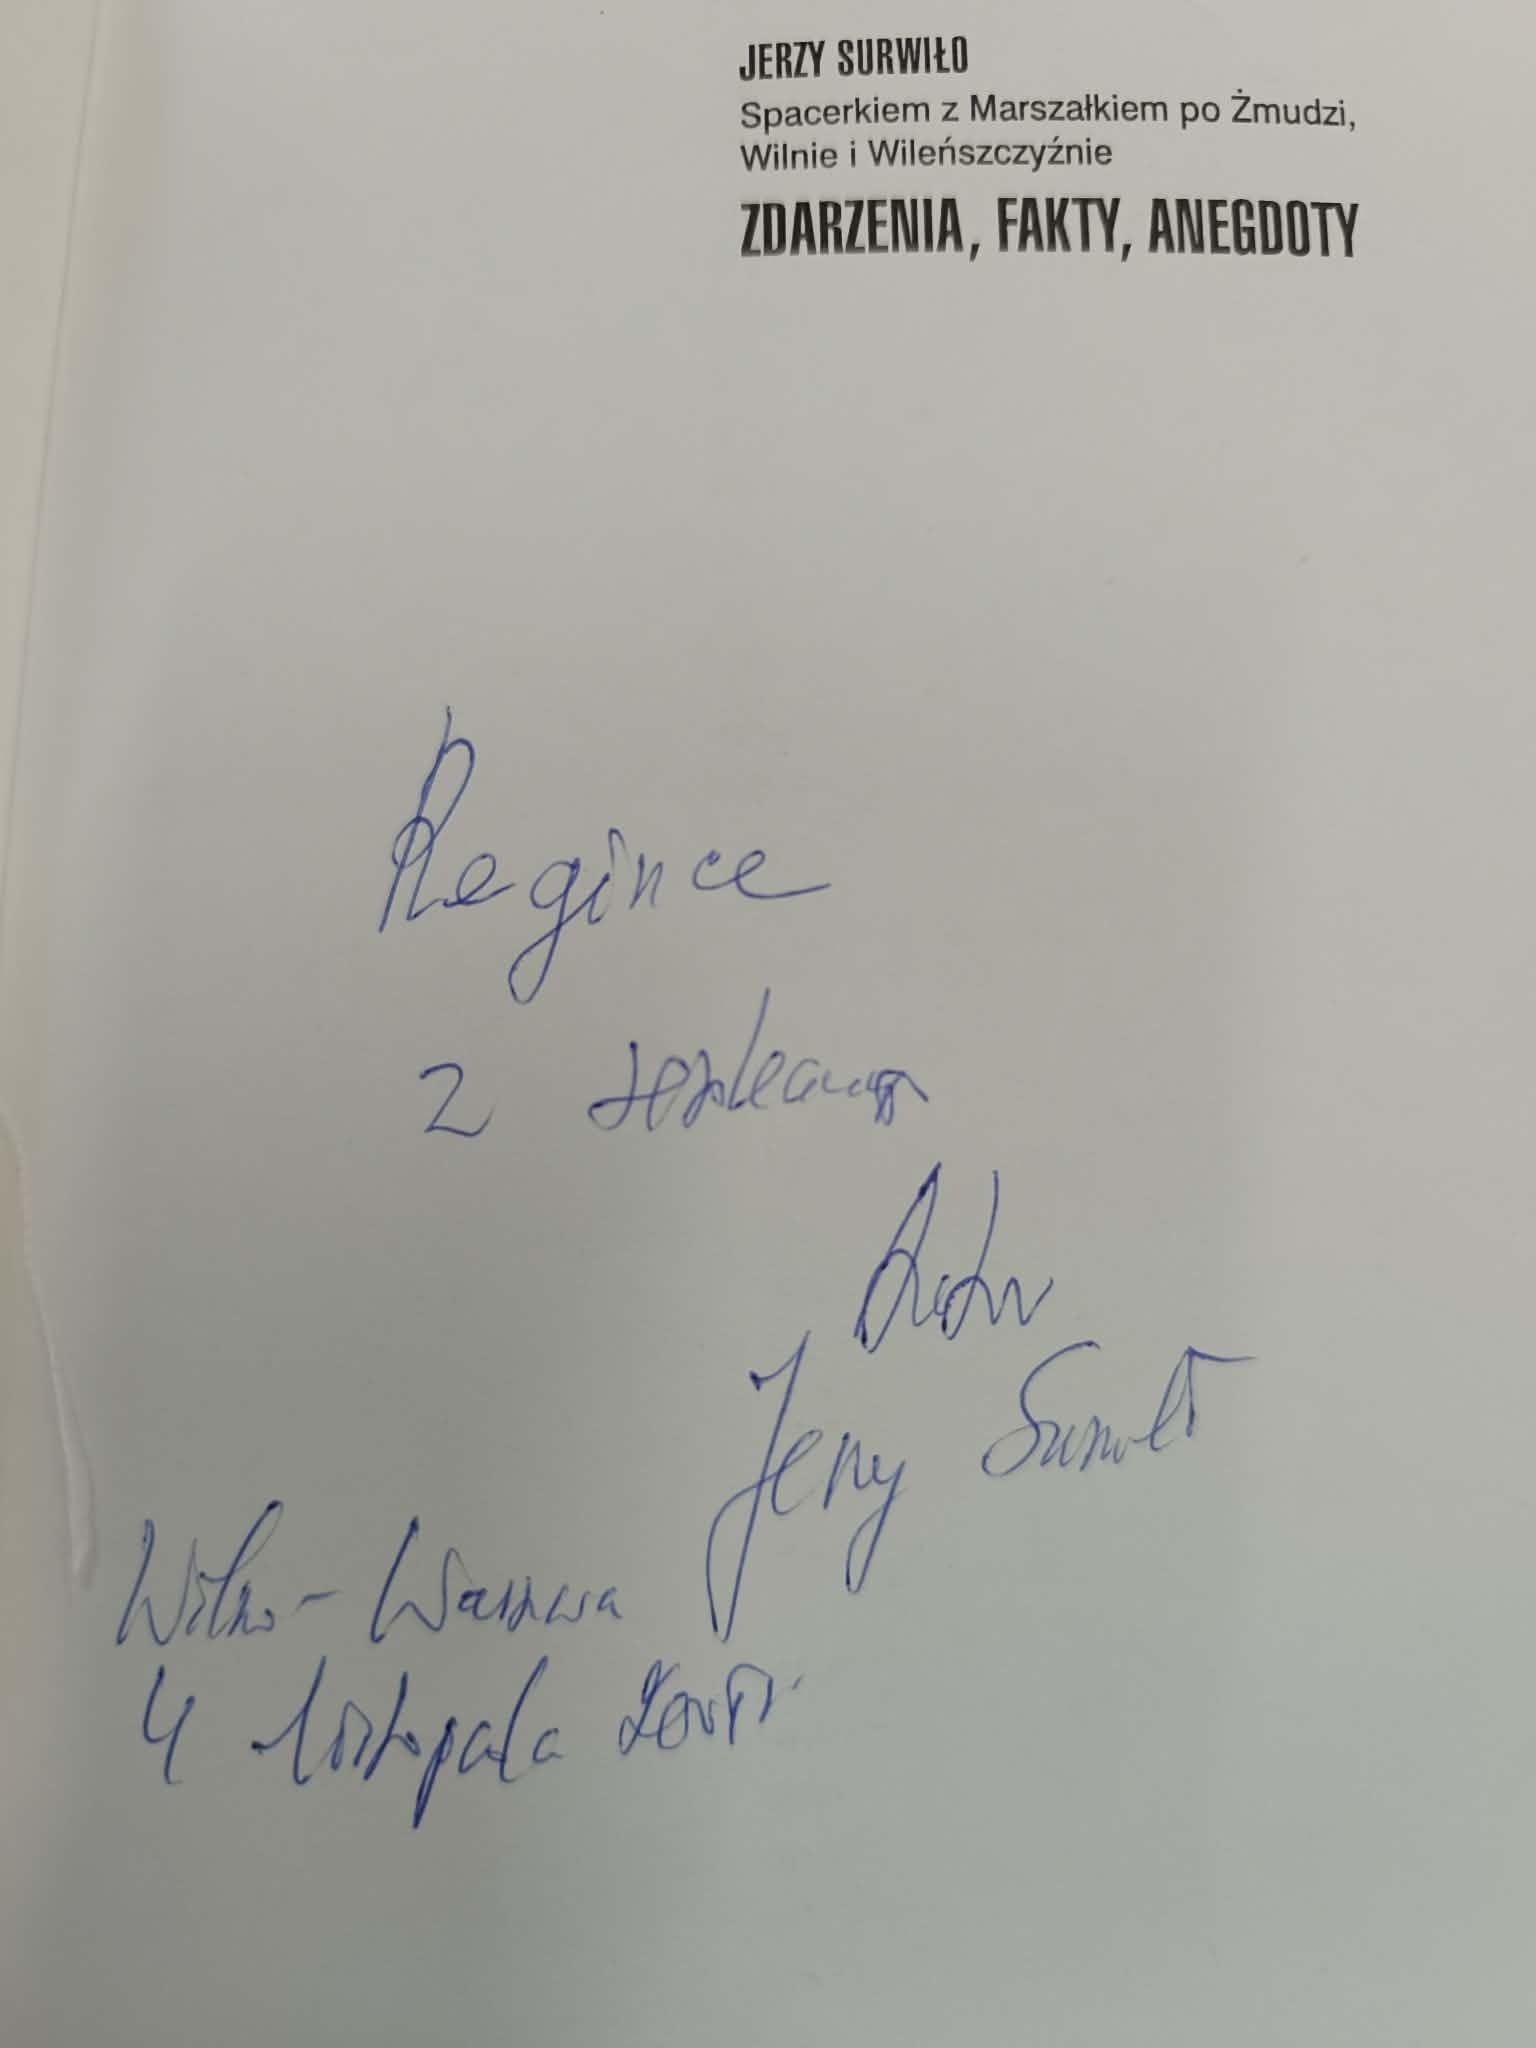 JERZY SURWIŁO
Spacerkiem z Marszałkiem po Żmudzi,
Wilnie i Wileńszczyźnie
ZDARZENIA, FAKTY, ANEGDOTY
Regince
z
Autor
Jerzy Surwiło
Wilno - Warszawa
4 listopada